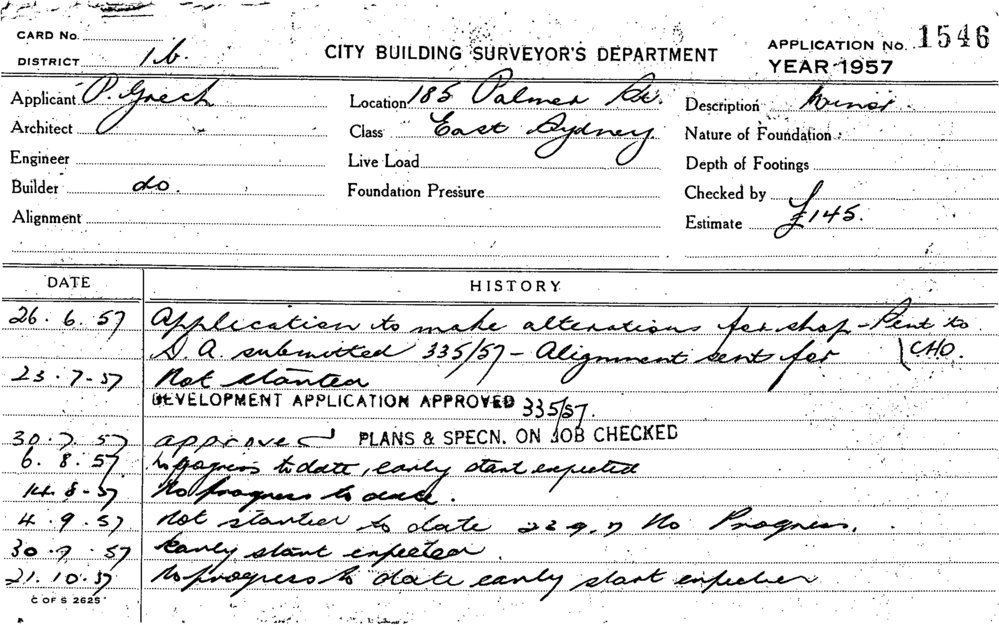 CARD No.
DISTRICT 1b.
CITY BUILDING SURVEYOR'S DEPARTMENT
APPLICATION No. 1546
YEAR 1957
Applicant P. Grech
Location 185 Palmer St.
Description Minor
Architect
Class East Sydney
Nature of Foundation
Engineer
Live Load
Depth of Footings
Builder do.
Foundation Pressure
Checked by
Alignment
Estimate £145.
DATE HISTORY
26.6.57 Application to make alterations for shop - Sent to
D.A. submitted 335/57 - Alignment sent for CHO.
23.7.57 Not started
DEVELOPMENT APPLICATION APPROVED 335/57.
30.7.57 approved PLANS & SPECN. ON JOB CHECKED
6.8.57 No progress to date, early start expected
14.8.57 No progress to date.
4.9.57 Not started to date 23.9.7 No Progress.
30.9.57 Early start expected.
21.10.57 No progress to date early start expected
C OF S 2625